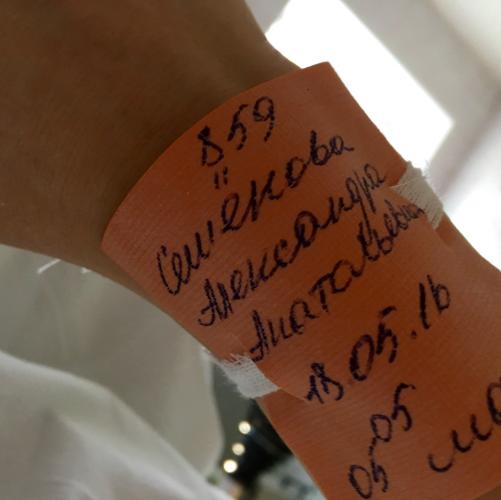 859
Семёнова
Александра
Анатольевна
18.05.16
05 05